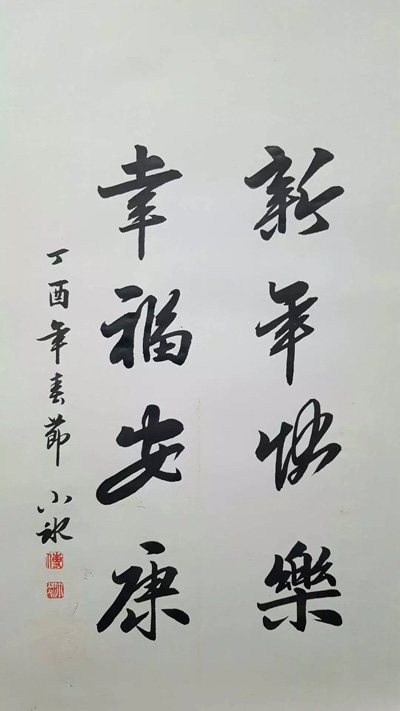 新年快樂
幸福安康
丁酉年春節 小冰
傅